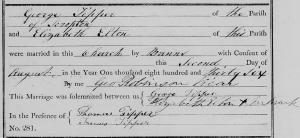 George Tipper of the Parish
of Scropton
and Elizabeth Elton of this Parish
were married in this Church by Banns with Consent of
this Second Day of
August in the Year One thousand eight hundred and thirty Six
By me Geo Robinson
This Marriage was solemnized between us George Tipper
Elizabeth Elton X her Mark
In the Presence of Thomas Tipper
Tipper
No. 281.